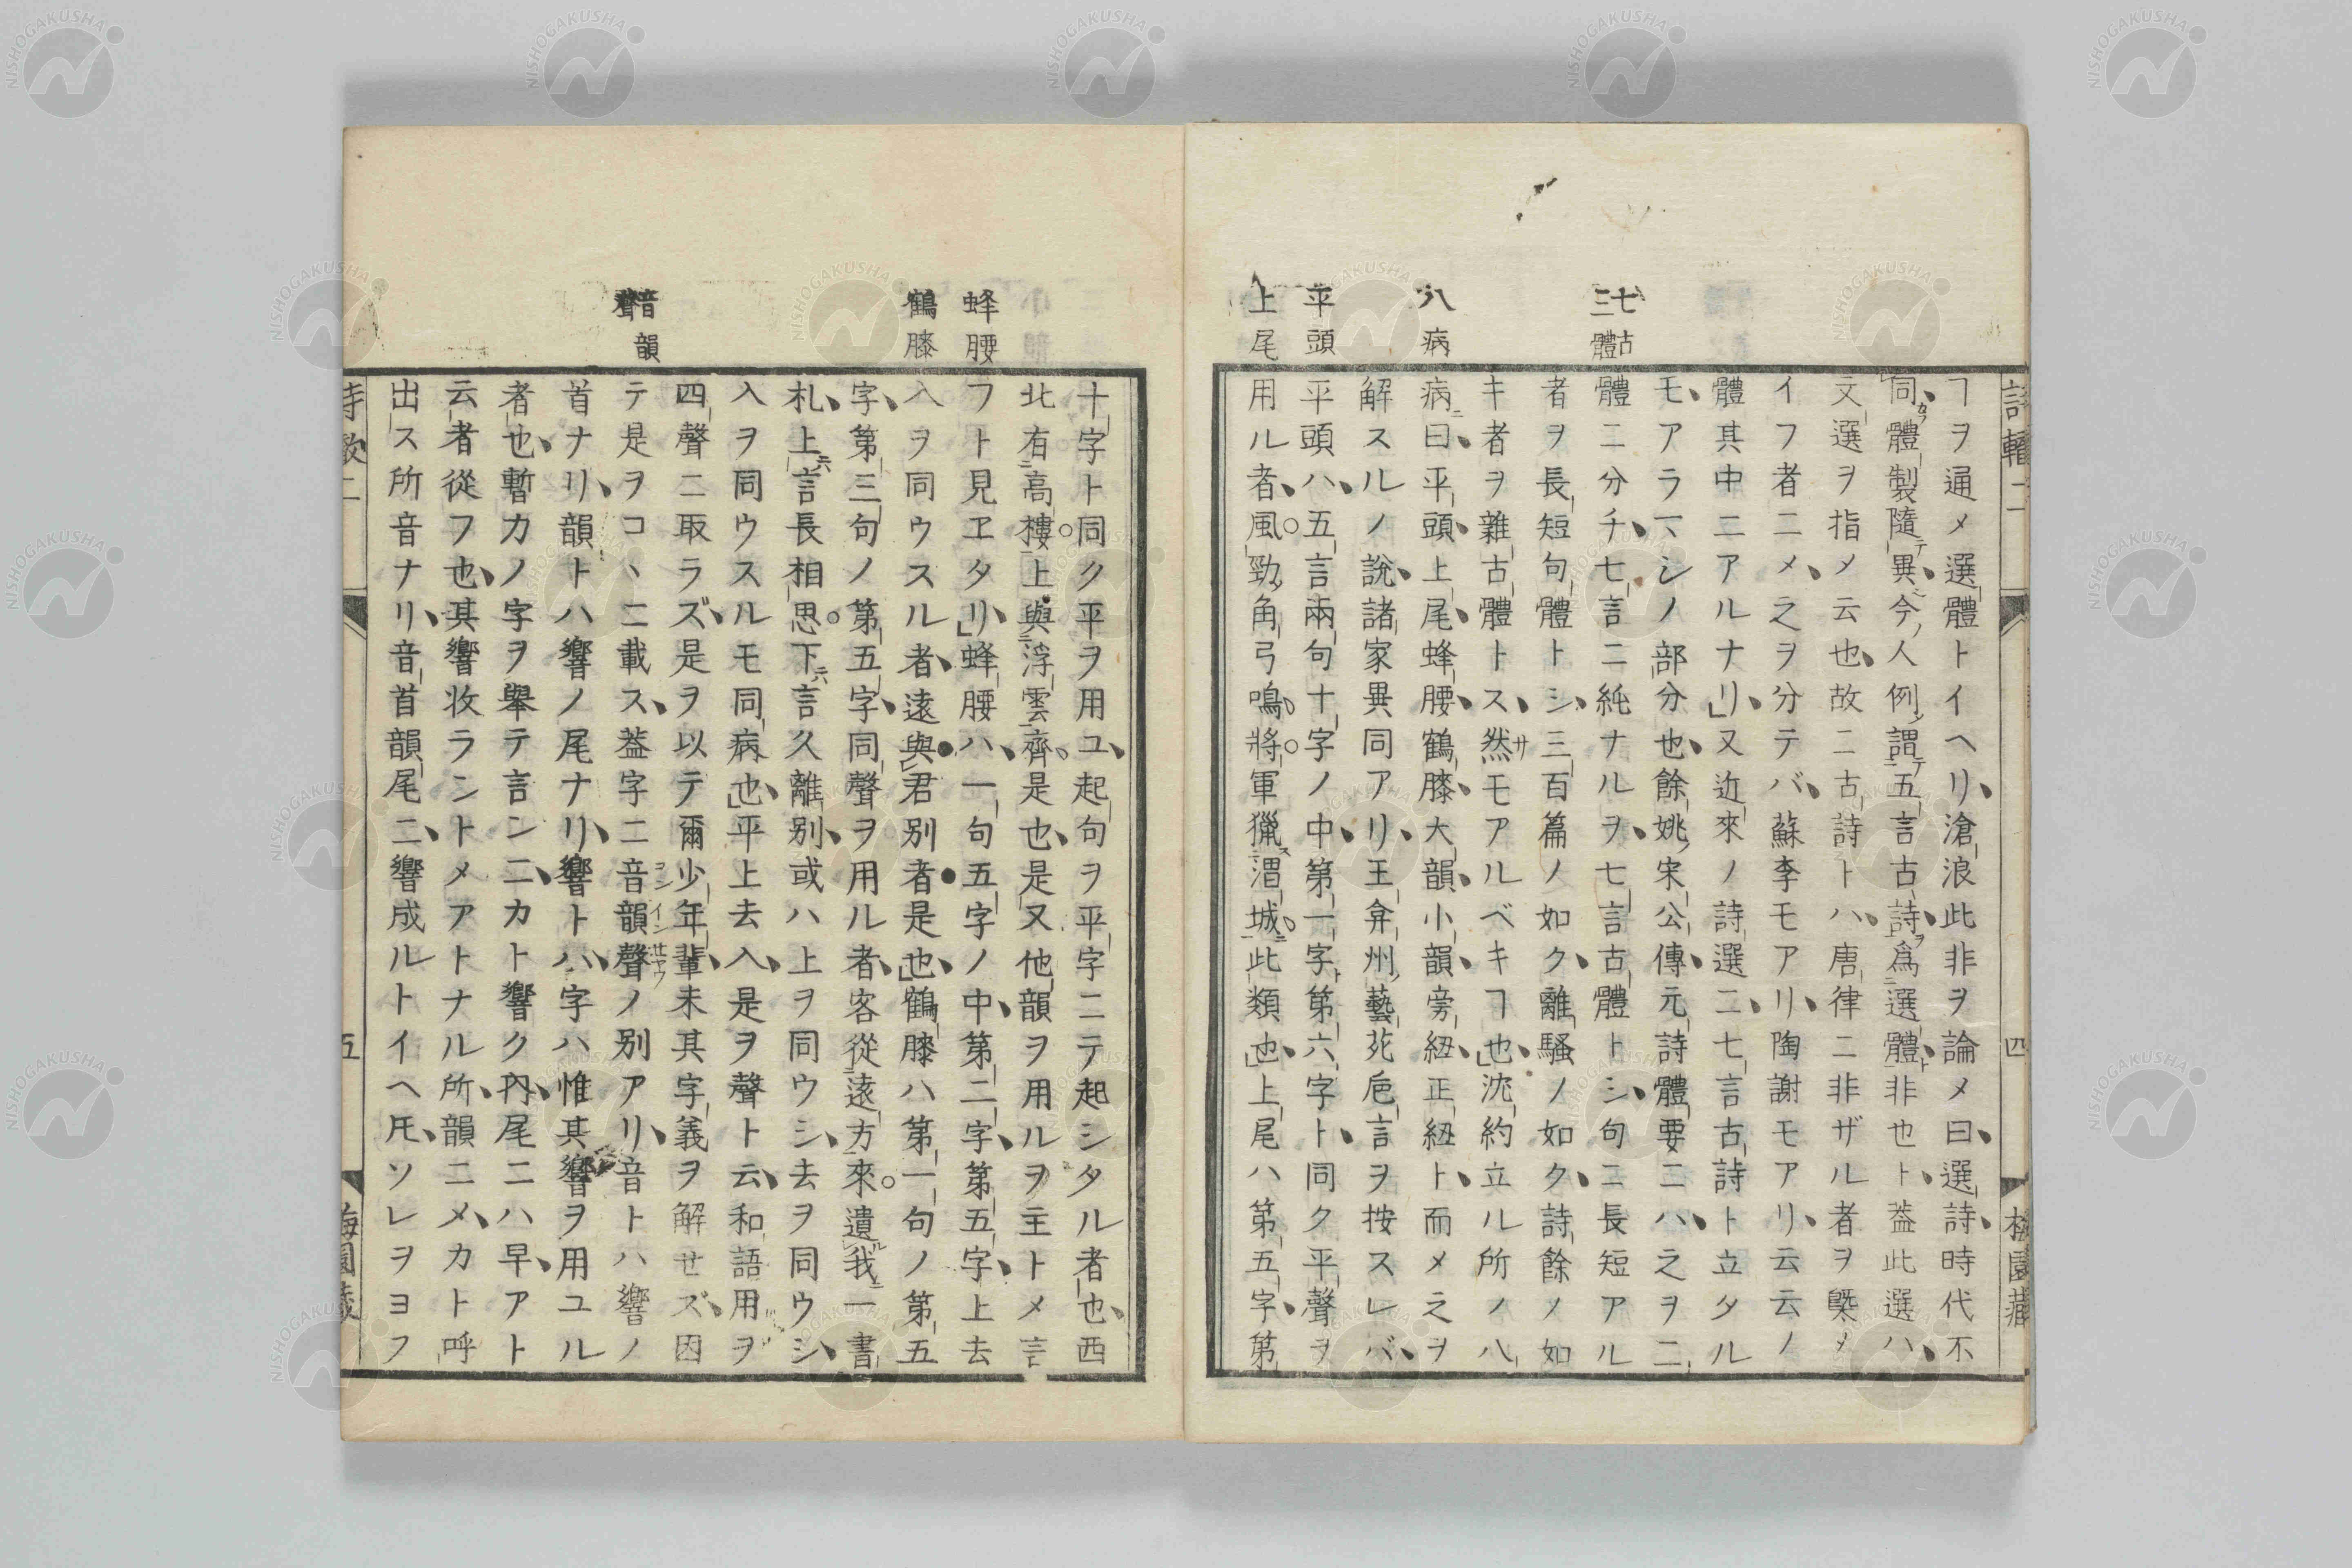 ヿヲ通メ選體トイヘリ、滄浪此非ヲ論メ曰、選詩、時代不
同、體製隨異、今人例謂五言古詩、爲選體、非也ト、葢此選ハ、
文選ヲ指メ云也、故ニ古詩トハ、唐律ニ非ザル者ヲ槩メ
イフ者ニメ、之ヲ分テバ、蘇李モアリ、陶謝モアリ、云云ノ
體其中ニアルナリ、又近來ノ詩選ニ、七言古詩ト立タル
モ、アラマシノ部分也、餘姚宋公傳、元詩體要ニハ、之ヲ二
體ニ分チ、七言ニ純ナルヲ、七言古體トシ、句ニ長短アル
者ヲ長短句體トシ、三百篇ノ如ク、離騷ノ如ク、詩餘ノ如
キ者ヲ雜古體トス、然モアルベキヿ也、沈約立ル所ノ八
病、曰、平頭、上尾、蜂腰、鶴膝、大韻、小韻、旁紐、正紐ト、而メ之ヲ
解スルノ說、諸家異同アリ、王弇州藝苑巵言ヲ按スレバ、
平頭ハ、五言兩句十字ノ中、第一字、第六字ト、同ク平聲ヲ
用ル者、風勁角弓鳴、將軍獵渭城、此類也、上尾ハ第五字、第
七古
三體
八病
平頭
上尾
四
梅園藏
十字ト同ク平ヲ用ユ、起句ヲ平字ニテ起シタル者也、西
北有高樓、上與浮雲齊、是也、是又他韻ヲ用ルヲ主トメ言
フト見ヱタリ、蜂腰ハ、一句五字ノ中、第二字、第五字、上去
入ヲ同ウスル者、遠與君別者是也、鶴膝ハ第一句ノ第五
字、第三句ノ第五字、同聲ヲ用ル者、客從遠方來、遺我一書
札、上言長相思、下言久離別、或ハ上ヲ同ウシ、去ヲ同ウシ、
入ヲ同ウスルモ同病也、平上去入、是ヲ聲ト云、和語用ヲ
四聲ニ取ラズ、是ヲ以テ爾少年輩、未其字義ヲ解せズ、因
テ是ヲコヽニ載ス、葢字ニ音韻聲ノ別アリ、音トハ響ノ
首ナリ、韻トハ響ノ尾ナリ、響トハ、字ハ惟其響ヲ用ユル
者也、暫カノ字ヲ擧テ言ンニ、カト響ク、內尾ニハ早、アト
云者從フ也、其響收ラントメアトナル所、韻ニメ、カト呼
出ス所音ナリ、音首韻尾ニ、響成ルトイヘ𪜈、ソレヲヨフ
蜂腰
鶴膝
音韻
聲
五